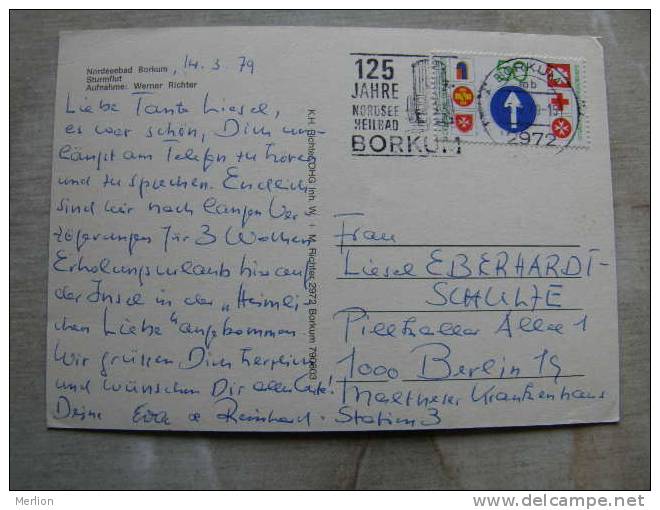 Nordseebad Borkum
14.3.79
Sturmflut
Aufnahme: Werner Richter
Liebe Tante Liesel,
es war schön, Dich un-
längst am Telefon zu hören
und zu sprechen. Endlich
sind wir nach langen Ver
zögerungen für 3 Wochen
Erholungsurlaub hier auf
der Insel in der „Heimli-
chen Liebe" angekommen.
Wir grüssen Dich herzlich
und wünschen Dir alles Gute!
Deine Reinhard.
K.H. Richter OHG Inh. W. + M. Richter, 2972 Borkum 790803
125
JAHRE
NORDSEE
HEILBAD
BORKUM
BORKUM
2972
Frau
Liesel EBERHARDT-
SCHULZE
Pillkaller Allee 1
1000 Berlin 19
Malteser Krankenhaus
Station 3
Merlion
www.delcampe.net